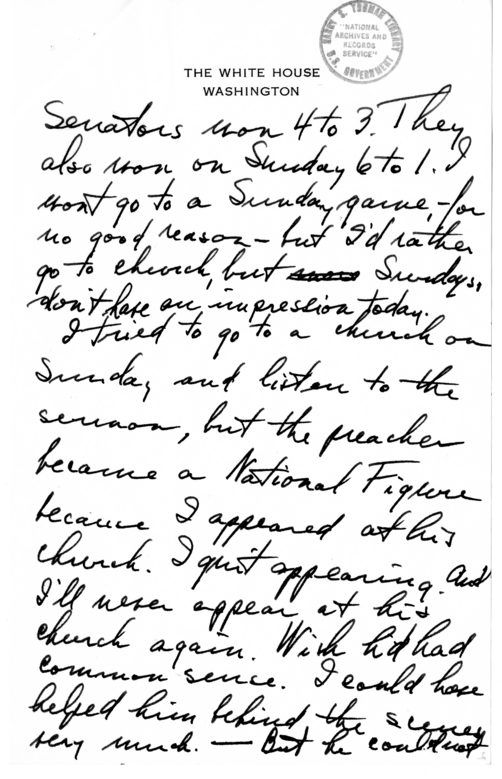 HARRY S. TRUMAN LIBRARY
"NATIONAL
ARCHIVES AND
RECORDS
SERVICE"
U.S. GOVERNMENT
THE WHITE HOUSE
WASHINGTON
Senators won 4 to 3. They
also won on Sunday 6 to 1. I
wont go to a Sunday game,- for
no good reason - but I'd rather
go to church, but Sundays,
don't have an impression today.
I tried to go to a church on
Sunday and listen to the
sermon, but the preacher
became a National Figure
because I appeared at his
church. I quit appearing. And
I'll never appear at his
church again. Wish he'd had
common sence. I could have
helped him behind the scenes
very much. — But he could not